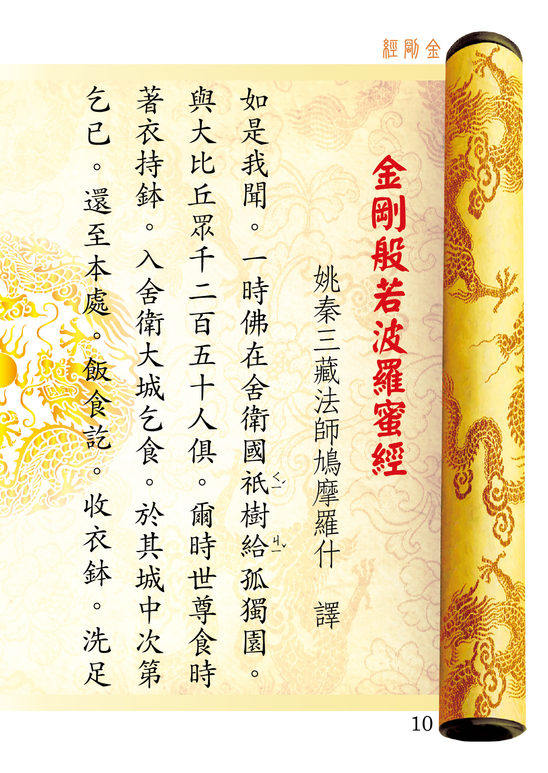 金剛經
金剛般若波羅蜜經
姚秦三藏法師鳩摩羅什 譯
如是我聞。一時佛在舍衛國祇ㄑㄧˊ樹給ㄐㄧˇ孤獨園。
與大比丘眾千二百五十人俱。爾時世尊食時
著衣持鉢。入舍衛大城乞食。於其城中次第
乞已。還至本處。飯食訖。收衣鉢。洗足
10